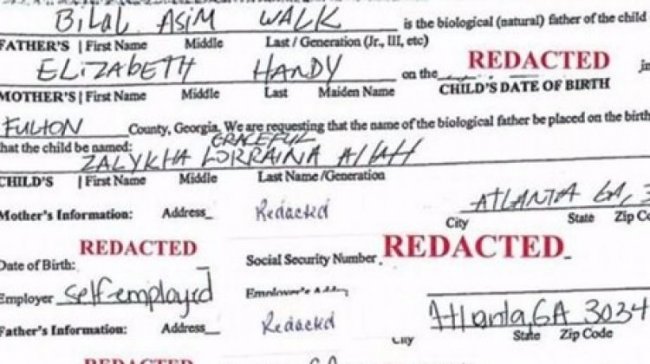 BilAl ASiM WALK is the biological (natural) father of the child
FATHER'S | First Name Middle Last / Generation (Jr., III, etc)
ELIZAbETH HANDY on the REDACTED in
MOTHER'S | First Name Middle Last Maiden Name CHILD'S DATE OF BIRTH
FULTON County, Georgia. We are requesting that the name of the biological father be placed on the birth
GRACEfUL
that the child be named:
ZALYKHA LORRAINA AllAH
CHILD'S | First Name Middle Last Name /Generation
Mother's Information: Address Redacted ATLANTA GA, 3
City State Zip Co
REDACTED REDACTED
Date of Birth: Social Security Number
Employer Self-employed Employer's
Atlanta GA 3034
Father's Information: Address Redacted City State Zip Code
REDACTED